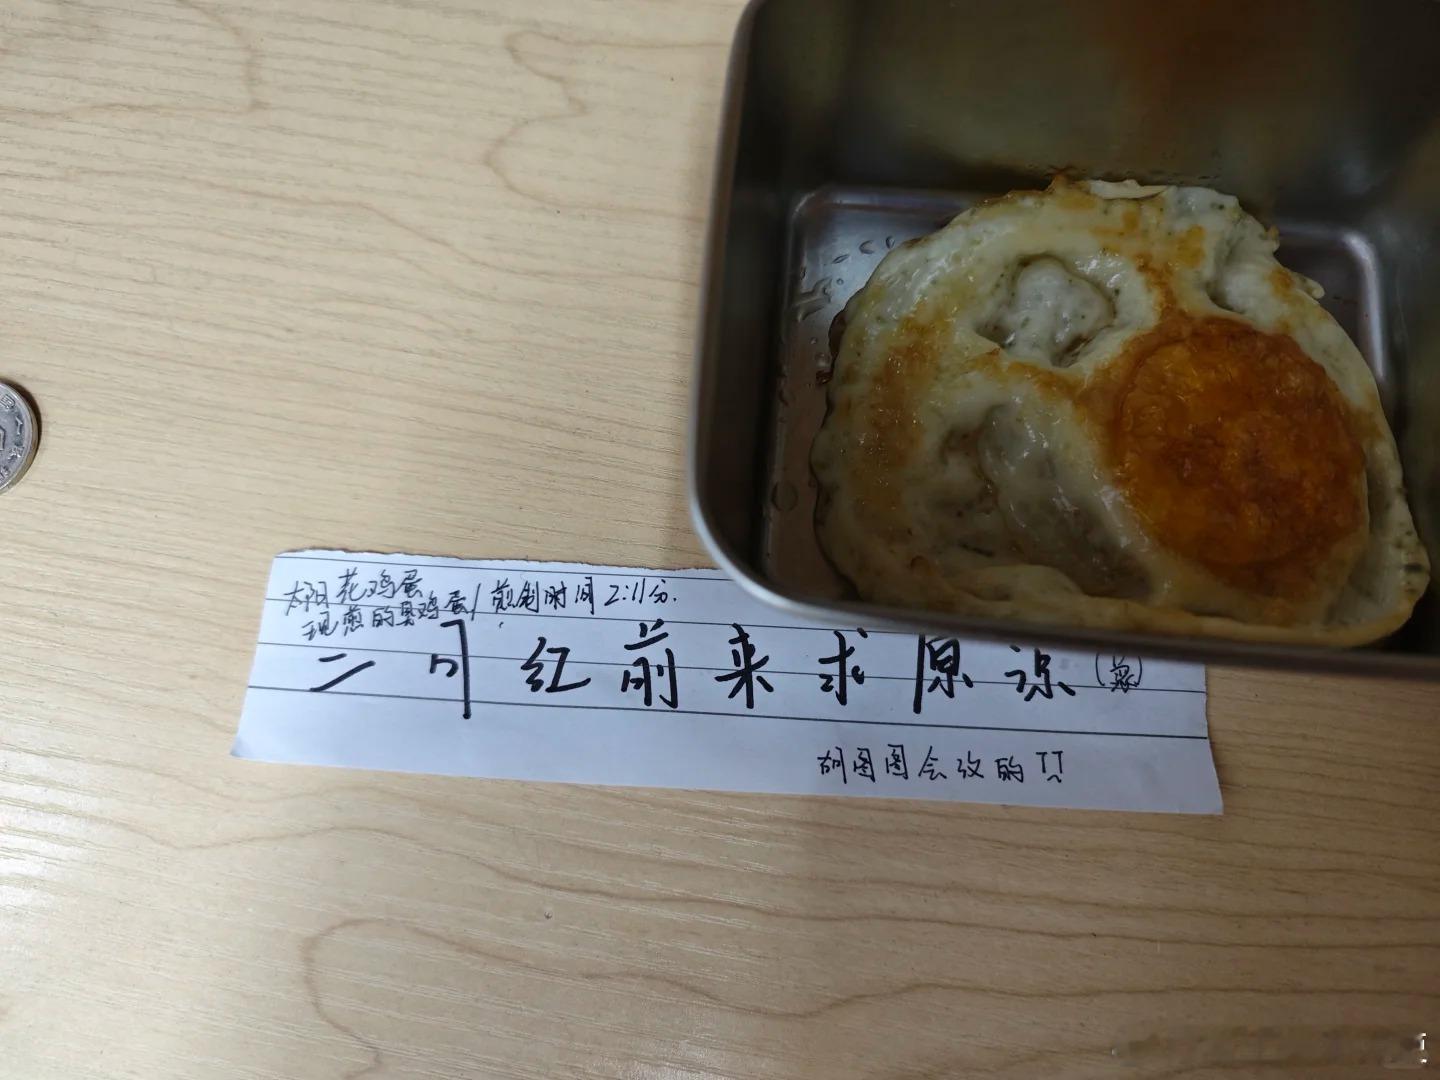 太阳花鸡蛋
现煎的臭鸡蛋/煎制时间2:11分.
二可红前来求原谅
胡图图会改的TT